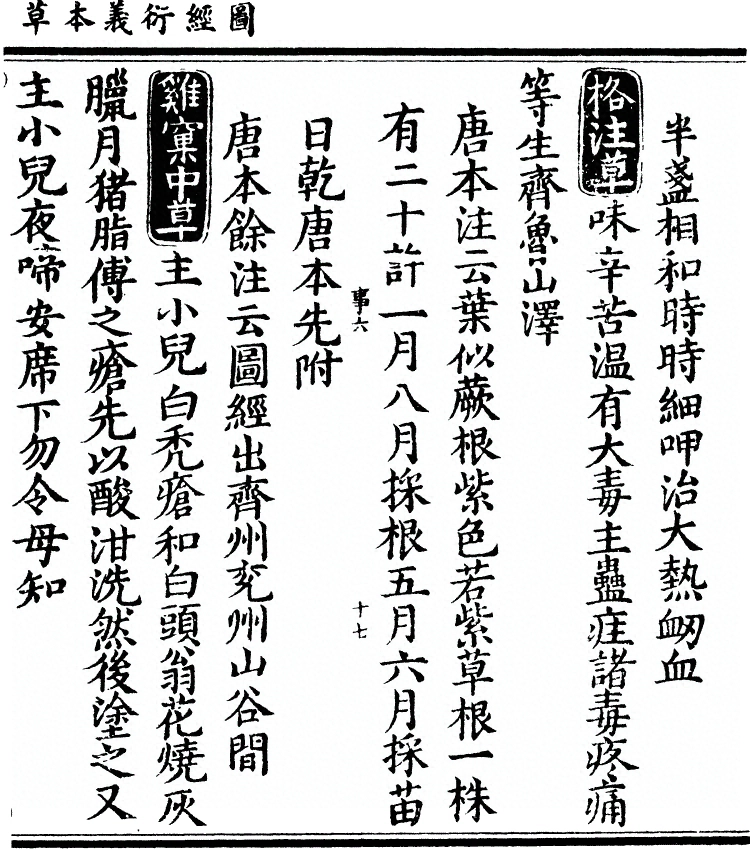 圖經衍義本草
半盞相和時時細呷治大熱衂血
格注草味辛苦温有大毒主蠱疰諸毒疼痛
等生齊魯山澤
唐本注云葉似蕨根紫色若紫草根一株
有二十許一月八月採根五月六月採苗
事六
十七
日乾唐本先附
唐本餘注云圖經出齊州兖州山谷間
雞窠中草主小兒白禿瘡和白頭翁花燒灰
臘月猪脂傅之瘡先以酸泔洗然後塗之又
主小兒夜啼安席下勿令母知